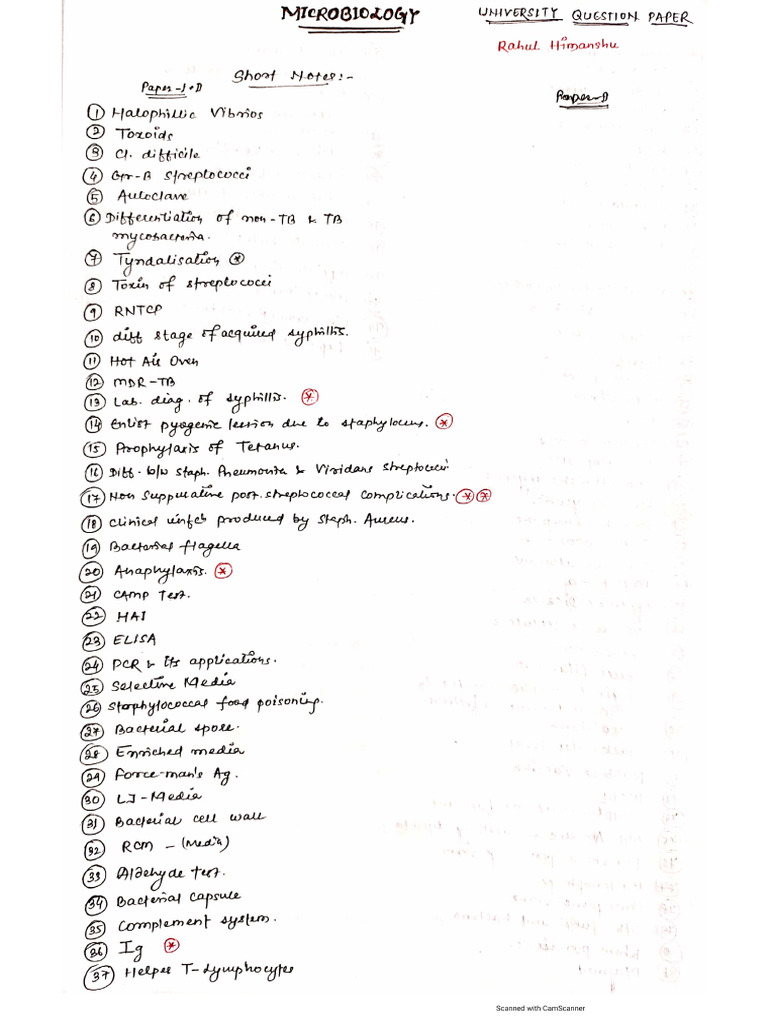 MICROBIOLOGY
UNIVERSITY QUESTION PAPER
Rahul Himanshu
Short Notes:-
Paper-I+II
Paper-II
1 Halophillic Vibrios
2 Toxoids
3 Cl. difficile
4 Grr-B streptococci
5 Autoclave
6 Differentiation of non-TB & TB
mycobacteria.
7 Tyndalisation *
8 Toxin of streptococci
9 RNTCP
10 diff stage of acquired syphillis.
11 Hot Air Oven
12 MDR-TB
13 Lab. diag. of syphillis. *
14 Enlist pyogenic lesion due to staphylocus. *
15 Prophylaxis of Tetanus.
16 Diff. b/w Staph. Pneumonia & Viridans streptococci
17 Non Suppurative post. streptococcal complications. * *
18 Clinical produced by Staph. Aureus.
19 Bacterial flagella
20 Anaphylaxis. *
21 CAMP Test.
22 HAI
23 ELISA
24 PCR & its applications.
25 Selective Media
26 Staphylococcal food poisoning.
27 Bacterial spore.
28 Enriched media
29 Force-man's Ag.
30 LJ-Media
31 Bacterial cell wall
32 RCM - (Media)
33 Aldehyde test.
34 Bacterial capsule
35 Complement system.
36 Ig *
37 Helper T-Lymphocytes
Scanned with CamScanner